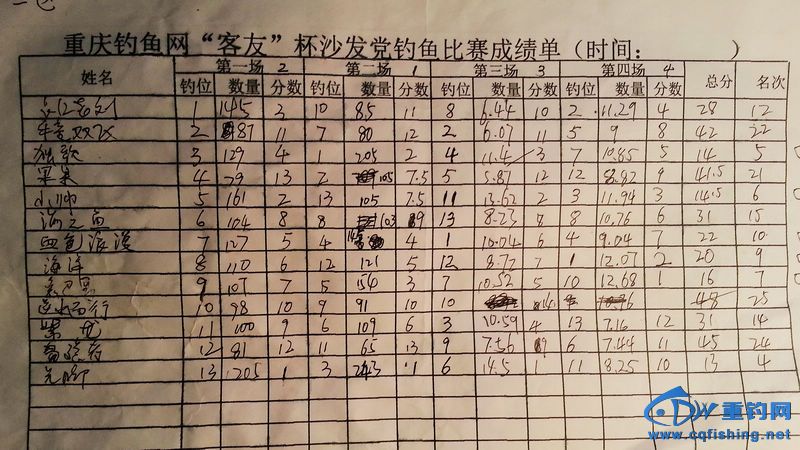 重庆钓鱼网“客友”杯沙发党钓鱼比赛成绩单（时间：              ）
姓名 第一场 2 第二场 1 第三场 3 第四场 4 总分 名次
钓位 数量 分数 钓位 数量 分数 钓位 数量 分数 钓位 数量 分数
1 145 3 10 85 11 8 6.44 10 2 11.29 4 28 12
2 87 11 7 80 12 2 6.07 11 5 9 8 42 22
独歌 3 129 4 1 205 2 4 11.4 3 7 10.85 5 14 5
果果 4 79 13 2 105 7.5 5 5.87 12 12 8.82 9 41.5 21
小帅 5 161 2 13 105 7.5 11 13.62 2 3 11.94 3 14.5 6
海之鱼 6 104 8 8 103 9 13 8.23 8 8 10.76 6 31 15
血色浪漫 7 127 5 4 4 1 10.04 6 4 9.04 7 22 10
海洋 8 110 6 12 121 5 12 8.77 7 1 12.07 2 20 9
9 107 7 5 154 3 7 10.52 5 10 12.68 1 16 7
10 98 10 9 91 10 10 48 25
11 100 9 6 109 6 3 10.59 4 13 7.16 12 31 14
12 81 12 11 65 13 9 7.56 9 6 7.44 11 45 24
光脚 13 205 1 3 243 1 6 14.5 1 11 8.25 10 13 4
DW 重钓网
www.cqfishing.net